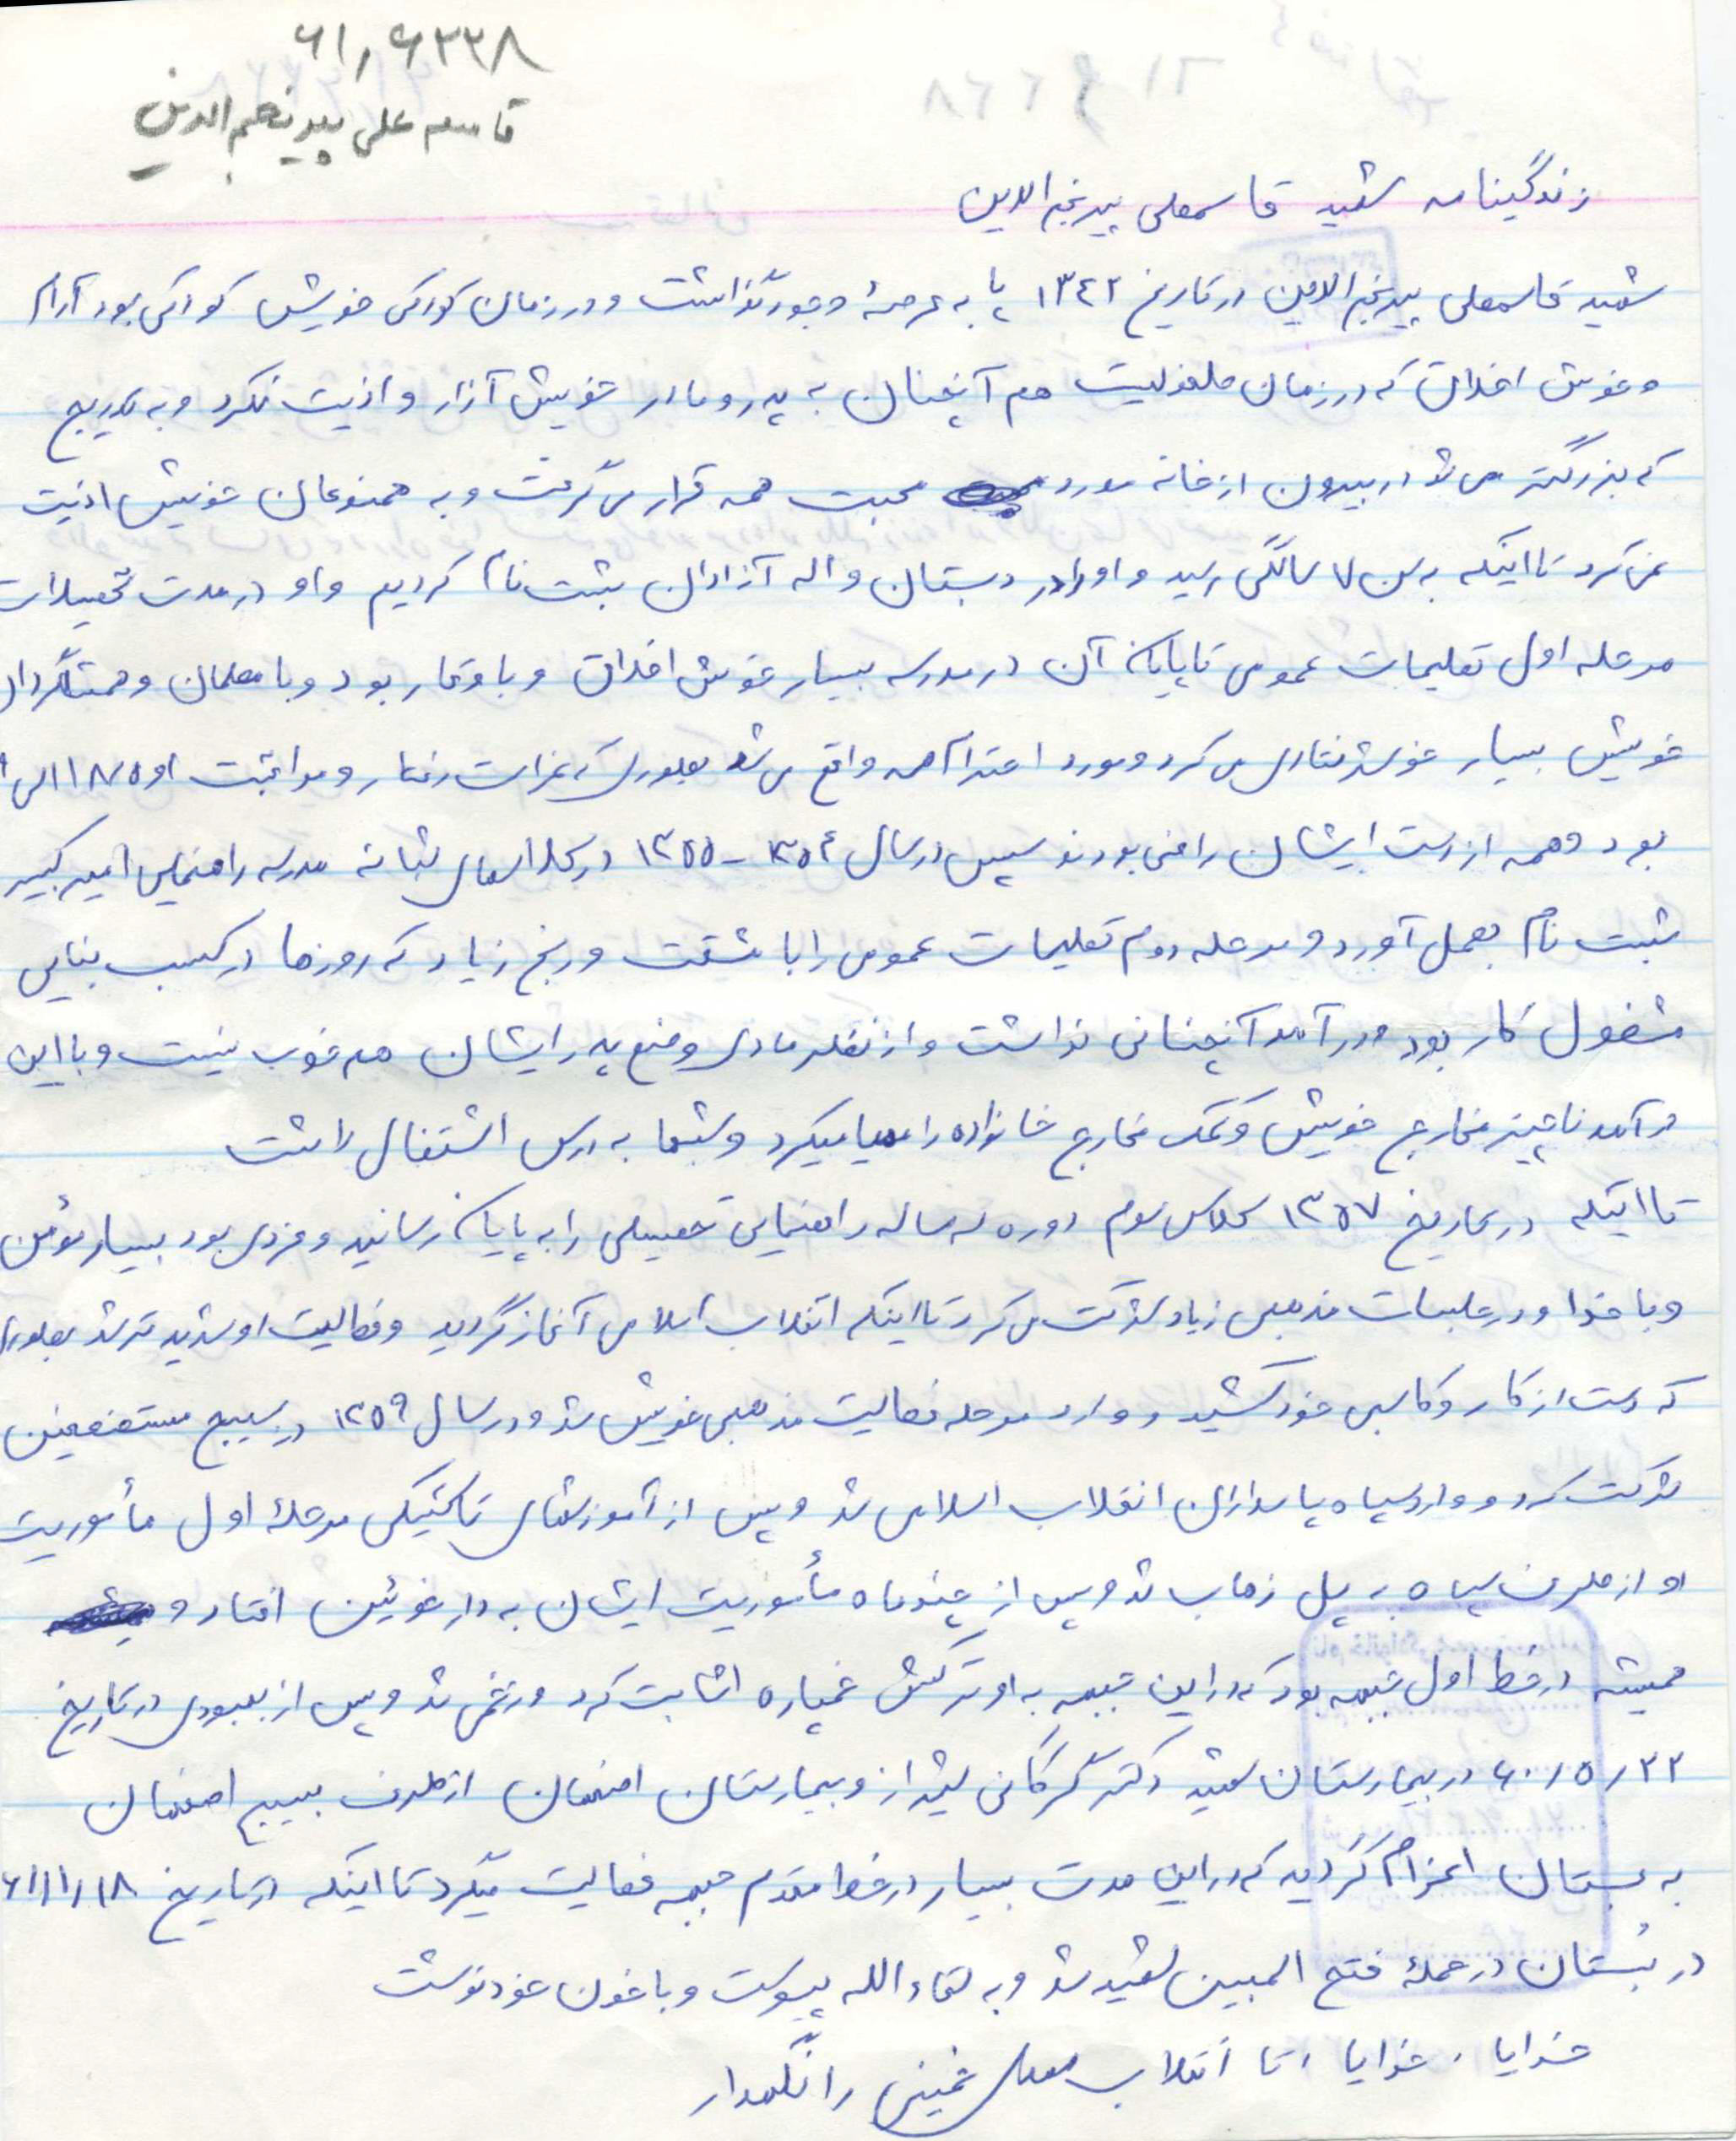 ۶۱٫۶۳۳۸
قاسم علی پیر نجم الدین
زندگینامه شهید قاسمعلی پیرنجم الدین
شهید قاسمعلی پیرنجم الدین در تاریخ ۱۳۴۲ پا به عرصهٔ وجود گذاشت و در زمان کودکی خویش کودکی بود آرام
و خوش اخلاق که در زمان طفولیت هم آنچنان به پدر و مادر خویش آزار و اذیت نکرد و به تدریج
که بزرگتر می شد در بیرون از خانه مورد محبت همه قرار می گرفت و به همنوعان خویش اذیت
نمی کرد تا اینکه به سن ۷ سالگی رسید و او را در دبستان واله آزادان ثبت نام کردیم و او در مدت تحصیلات
مرحله اول تعلیمات عمومی تا پایان آن در مدرسه بسیار خوش اخلاق و با وقار بود و با معلمان و همشاگردان
خویش بسیار خوشرفتاری می کرد و مورد احترام همه واقع می شد بطوری که نمرات رفتار و مواظبت او ۱۸/۵ الی
بود و همه از دست ایشان راضی بودند سپس در سال ۱۳۵۴ - ۱۳۵۵ در کلاسهای شبانه مدرسه راهنمایی امیرکبیر
ثبت نام بعمل آورد و مرحله دوم تعلیمات عمومی را با مشقت و رنج زیاد که روزها در کسب بنایی
مشغول کار بود و درآمد آنچنانی نداشت و از نظر مادی وضع پدر ایشان هم خوب نیست و با این
درآمد ناچیز مخارج خویش و کمک مخارج خانواده را مهیا میکرد و شبها به درس اشتغال داشت
تا اینکه در تاریخ ۱۳۵۷ کلاس سوم دوره سه ساله راهنمایی تحصیلی را به پایان رسانید و فردی بود بسیار مؤمن
و با خدا و در جلسات مذهبی زیاد شرکت می کرد تا اینکه انقلاب اسلامی آغاز گردید و فعالیت او شدید تر شد بطوری
که دست از کار و کاسبی خود کشید و وارد مرحله فعالیت مذهبی خویش شد و در سال ۱۳۵۹ در بسیج مستضعفین
شرکت کرد و وارد سپاه پاسداران انقلاب اسلامی شد و پس از آموزشهای تاکتیکی مرحلهٔ اول مأموریت
او از طرف سپاه به پل ذهاب شد و پس از چند ماه مأموریت ایشان به دارخوئین افتاد و
همیشه در خط اول جبهه بود که در این جبهه به او ترکش خمپاره اثابت کرد و زخمی شد و پس از بهبودی در تاریخ
۶۰/۵/۲۲ در بیمارستان شهید دکتر شیراز و بیمارستان اصفهان از طرف بسیج اصفهان
به بستان اعزام گردید که در این مدت بسیار در خط مقدم جبهه فعالیت میکرد تا اینکه در تاریخ ۶۱/۱/۱۸
در بستان در حملهٔ فتح المبین شهید شد و به لقاء الله پیوست و با خون خود نوشت
خدایا ، خدایا ، تا انقلاب مهدی خمینی را نگهدار